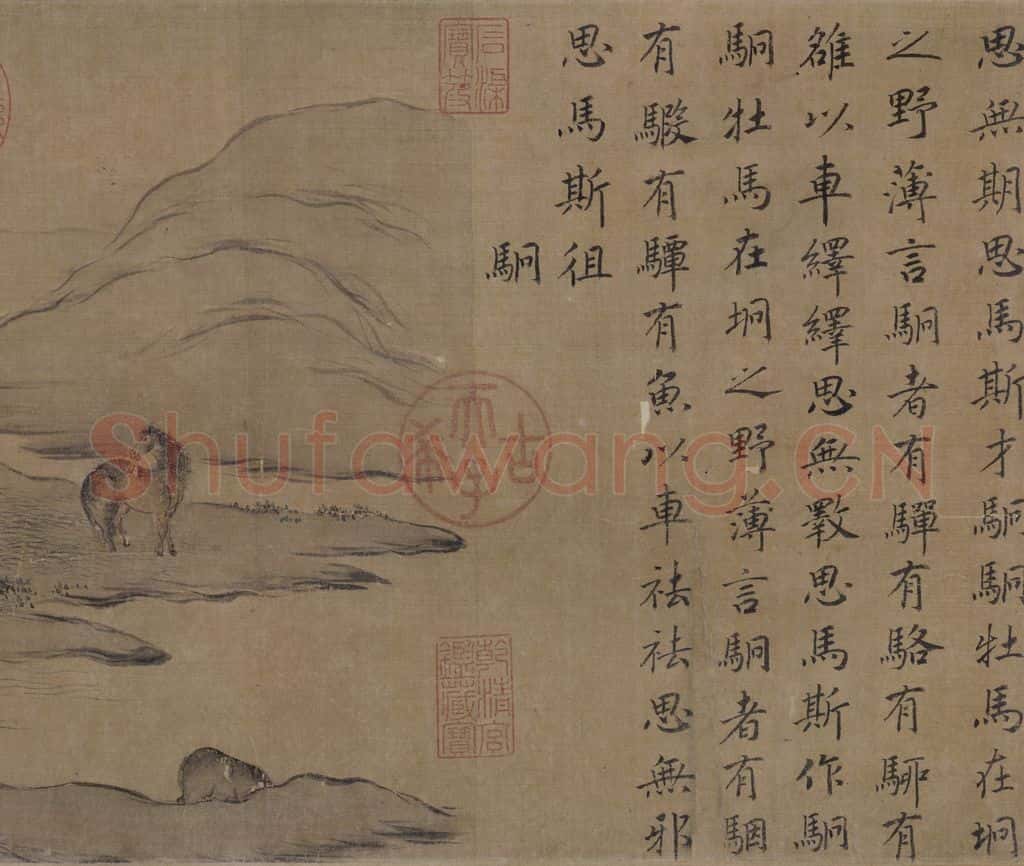 思無期思馬斯才駉駉牡馬在坰
之野薄言駉者有驒有駱有駵有
雒以車繹繹思無斁思馬斯作駉
駉牡馬在坰之野薄言駉者有駰
有騢有驔有魚以車祛祛思無邪
思馬斯徂
駉
石渠寶笈
古希天子
乾清宮鑑藏寶
Shufawang.CN